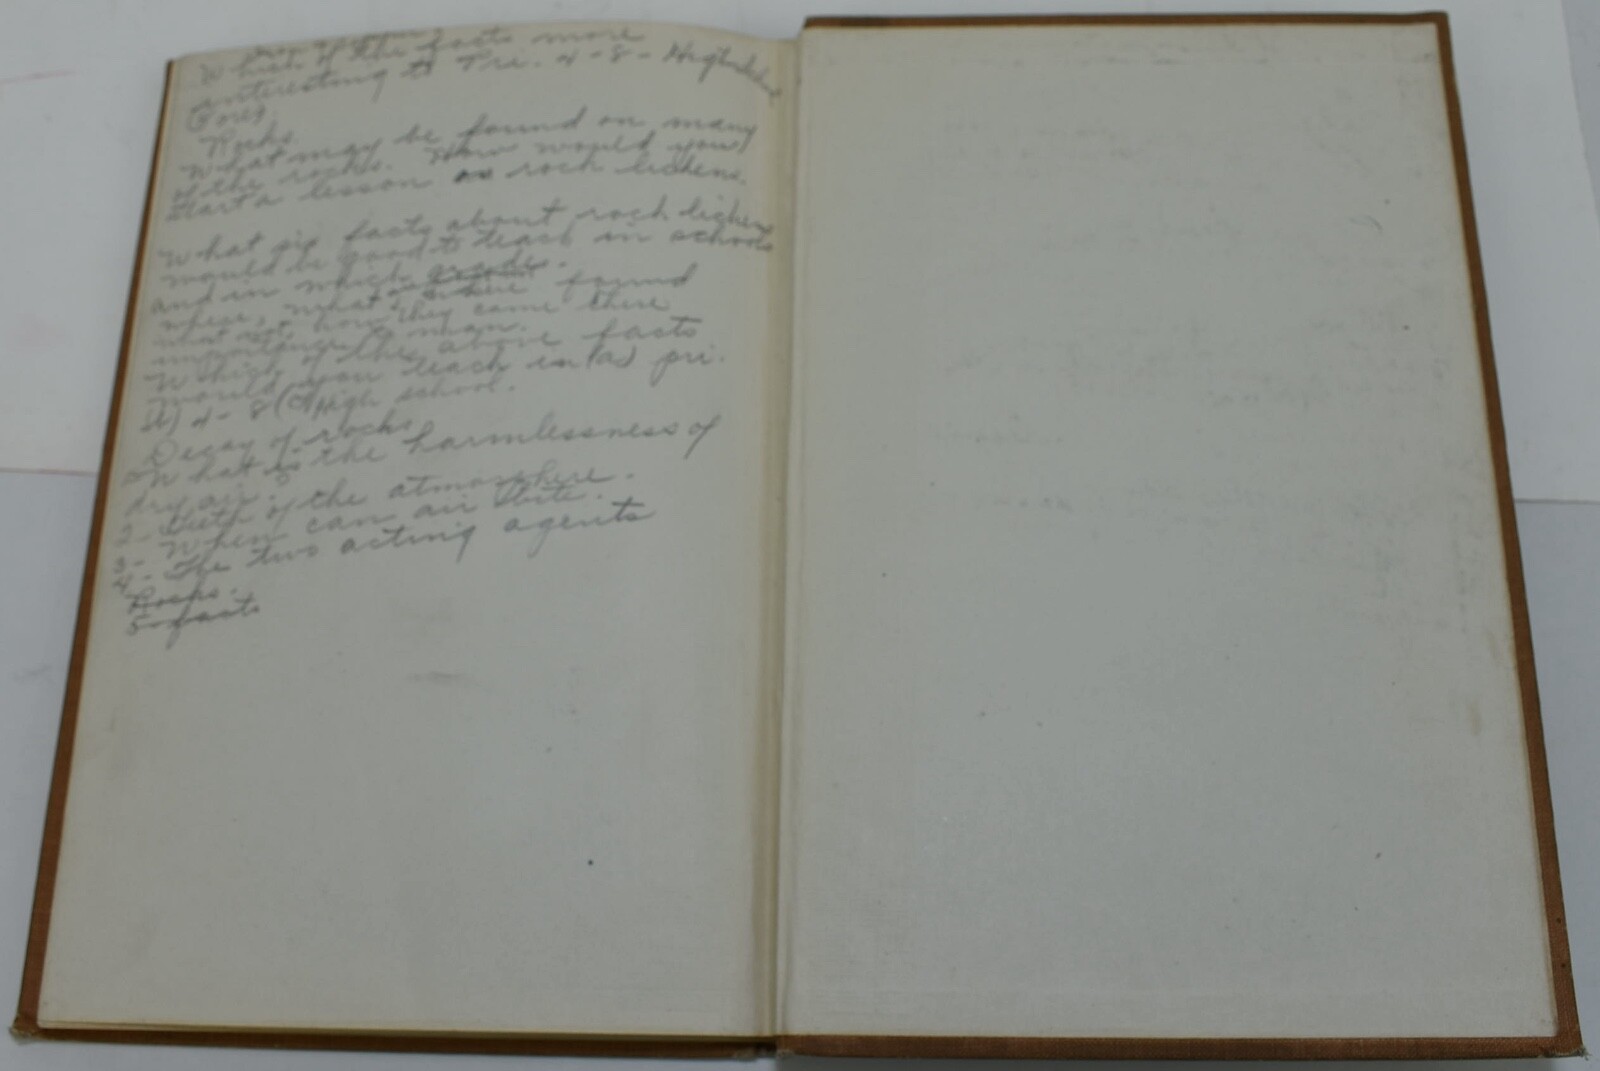 Which of the facts more
interesting to Pri. 4-8- High School
Rocks.
What may be found on many
of the rocks. How would you
start a lesson on rock lichens.
What six facts about rock lichens
would be good to teach in schools
and in which grade.
where, what where found
what not, how they came there
importance to man.
Which of the above facts
would you teach in (a) pri.
(b) 4-8 (c) High school.
Decay of rocks
What is the harmlessness of
dry air.
2- teeth of the atmosphere.
3- When can air bite.
4- The two acting agents
Rocks.
5 facts